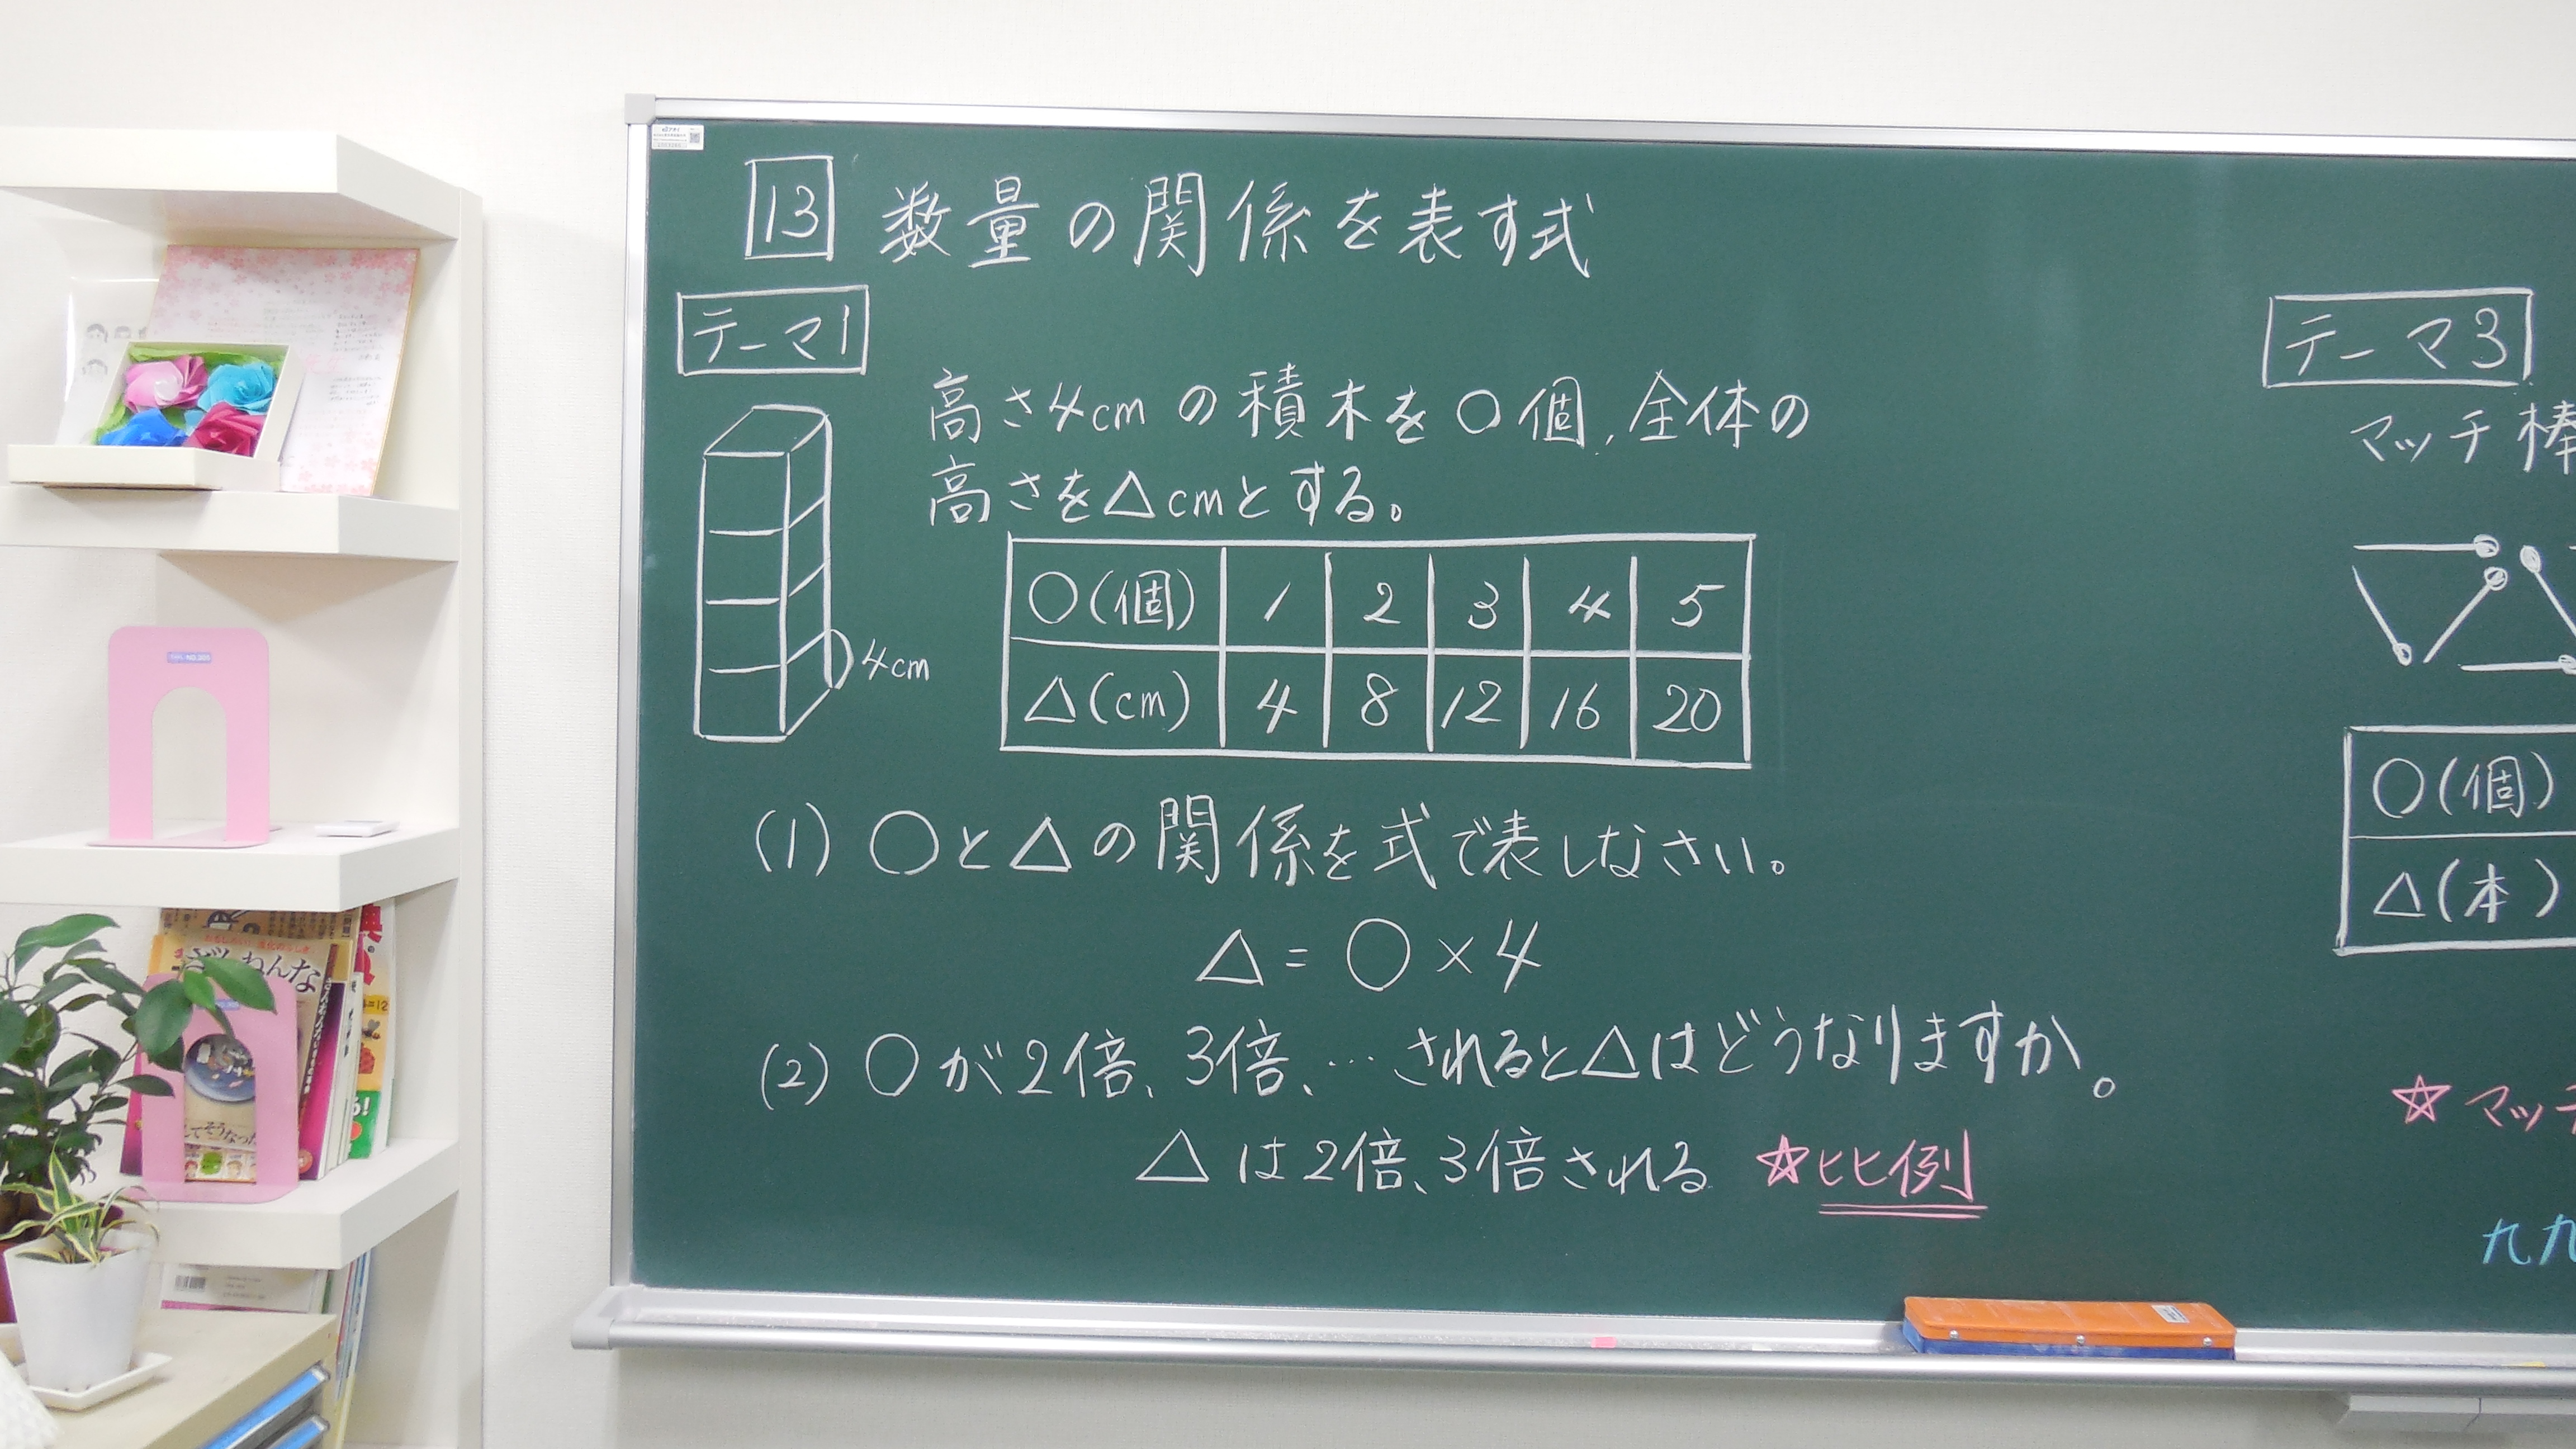 13 数量の関係を表す式
テーマ1
高さ4cmの積木を○個、全体の
高さを△cmとする。
4cm
○(個) 1 2 3 4 5
△(cm) 4 8 12 16 20
(1) ○と△の関係を式で表しなさい。
△=○×4
(2) ○が2倍、3倍、…されると△はどうなりますか。
△は2倍、3倍される ☆比例
テーマ3
マッチ棒
○(個)
△(本)
☆マッチ
九九
NO.305
ざんねんな
してそうなった